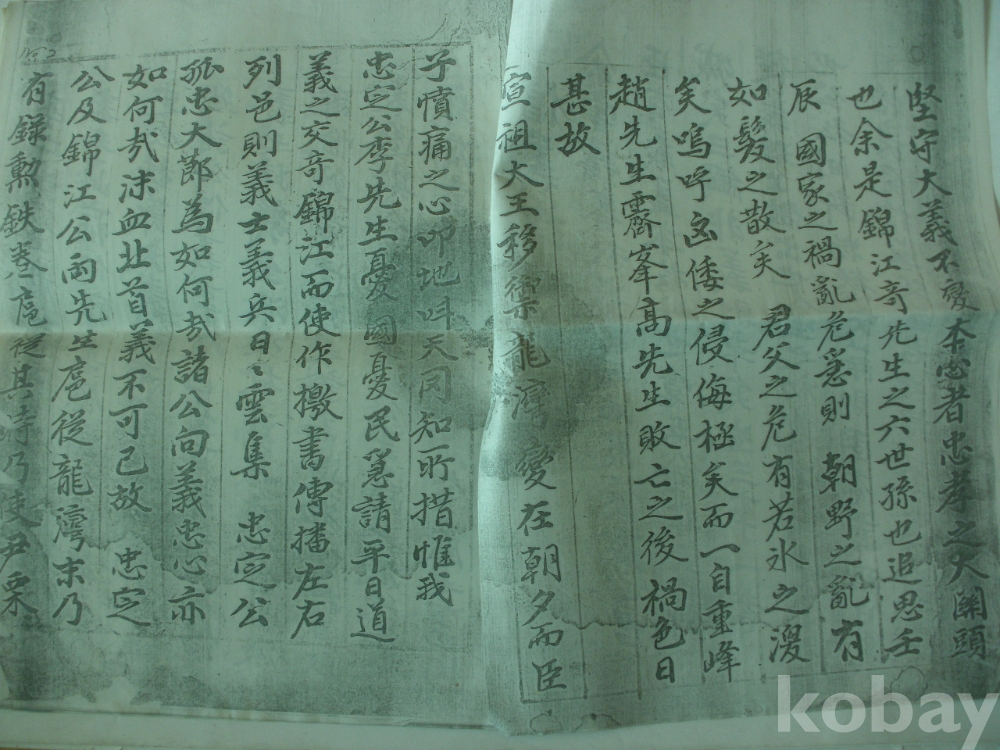 堅守大義不變本心者忠孝之大關頭
也余是錦江奇先生之六世孫也追思壬
辰 國家之禍亂危急則 朝野之亂有
如髮之散矣 君父之危有若氷之漫
矣嗚呼凶倭之侵侮極矣而一自重峰
趙先生霽峯高先生敗亡之後禍色日
甚故
宣祖大王移禦龍灣變在朝夕而臣
子憤痛之心叩地叫天罔知所措惟我
忠定公李先生憂國憂民箋請平日道
義之交奇錦江而使作檄書傳播左右
列邑則義士義兵日〻雲集 忠定公
孤忠大節為如何哉諸公向義忠心亦
如何哉沫血北首義不可已故 忠定
公及錦江公兩先生扈從龍灣末乃
有錄勳鉄巻扈從其時乃使尹栗
kobay